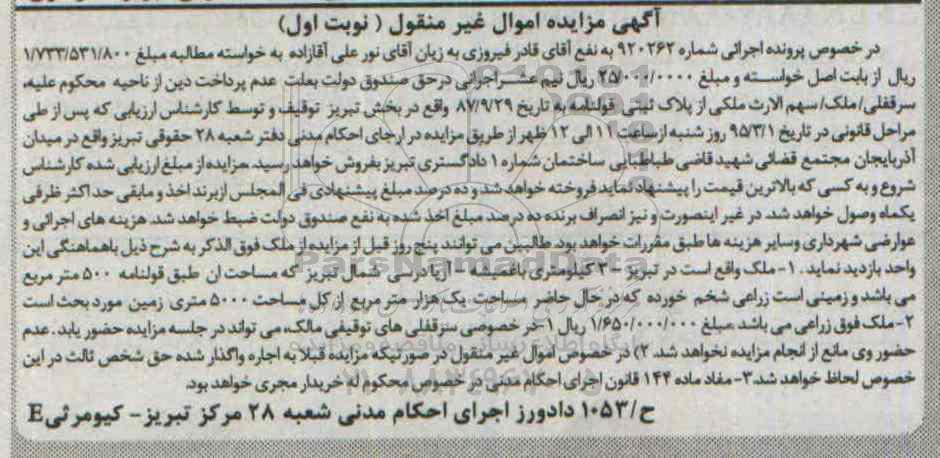 آگهی مزایده اموال غیر منقول ( نوبت اول)
در خصوص پرونده اجرائی شماره ۹۲۰۲۶۲ به نفع آقای قادر فیروزی به زیان آقای نور علی آقازاده به خواسته مطالبه مبلغ ۱/۷۳۳/۵۳۱/۸۰۰
ریال از بابت اصل خواسته و مبلغ ۲۵/۰۰۰/۰۰۰۰ ریال نیم عشر اجرائی درحق صندوق دولت بعلت عدم پرداخت دین از ناحیه محکوم علیه،
سرقفلی/ملک/سهم الارث ملکی از پلاک ثبتی قولنامه به تاریخ ۸۷/۹/۲۹ واقع در بخش تبریز توقیف و توسط کارشناس ارزیابی که پس از طی
مراحل قانونی در تاریخ ۹۵/۳/۱ روز شنبه ازساعت ۱۱ الی ۱۲ ظهر از طریق مزایده در ارجای احکام مدنی دفتر شعبه ۲۸ حقوقی تبریز واقع در میدان
آذربایجان مجتمع قضائی شهید قاضی طباطبایی ساختمان شماره ۱ دادگستری تبریز بفروش خواهد رسید. مزایده از مبلغ ارزیابی شده کارشناس
شروع و به کسی که بالاترین قیمت را پیشنهاد نماید فروخته خواهد شد و ده درصد مبلغ پیشنهادی فی المجلس ازبرند اخذ و مابقی حد اکثر ظرفی
یکماه وصول خواهد شد. در غیر اینصورت و نیز انصراف برنده ده درصد مبلغ اخذ شده به نفع صندوق دولت ضبط خواهد شد. هزینه های اجرائی و
عوارضی شهرداری وسایر هزینه ها طبق مقررات خواهد بود. طالبین می توانند پنج روز قبل از مزایده از ملک فوق الذکر به شرح ذیل باهماهنگی این
واحد بازدید نماید. ۱- ملک واقع است در تبریز - ۳ کیلومتری باغمیشه - آرپا درسی شمال تبریز که مساحت ان طبق قولنامه ۵۰۰ متر مربع
می باشد و زمینی است زراعی شخم خورده که در حال حاضر مساحت یک هزار متر مربع از کل مساحت ۵۰۰۰ متری زمین مورد بحث است
۲- ملک فوق زراعی می باشد مبلغ ۱/۶۵۰/۰۰۰/۰۰۰ ریال ۱-در خصوصی سرقفلی های توقیفی مالک، می تواند در جلسه مزایده حضور یابد. عدم
حضور وی مانع از انجام مزایده نخواهد شد. ۲) در خصوص اموال غیر منقول در صورتیکه مزایده قبلا به اجاره واگذار شده حق شخص ثالث در این
خصوص لحاظ خواهد شد.۳- مفاد ماده ۱۴۴ قانون اجرای احکام مدنی در خصوص محکوم له خریدار مجری خواهد بود.
ح/۱۰۵۳ دادورز اجرای احکام مدنی شعبه ۲۸ مرکز تبریز- کیومرثی E
ParsNamadData
پایگاه اطلاع رسانی مناقصه و مزایده